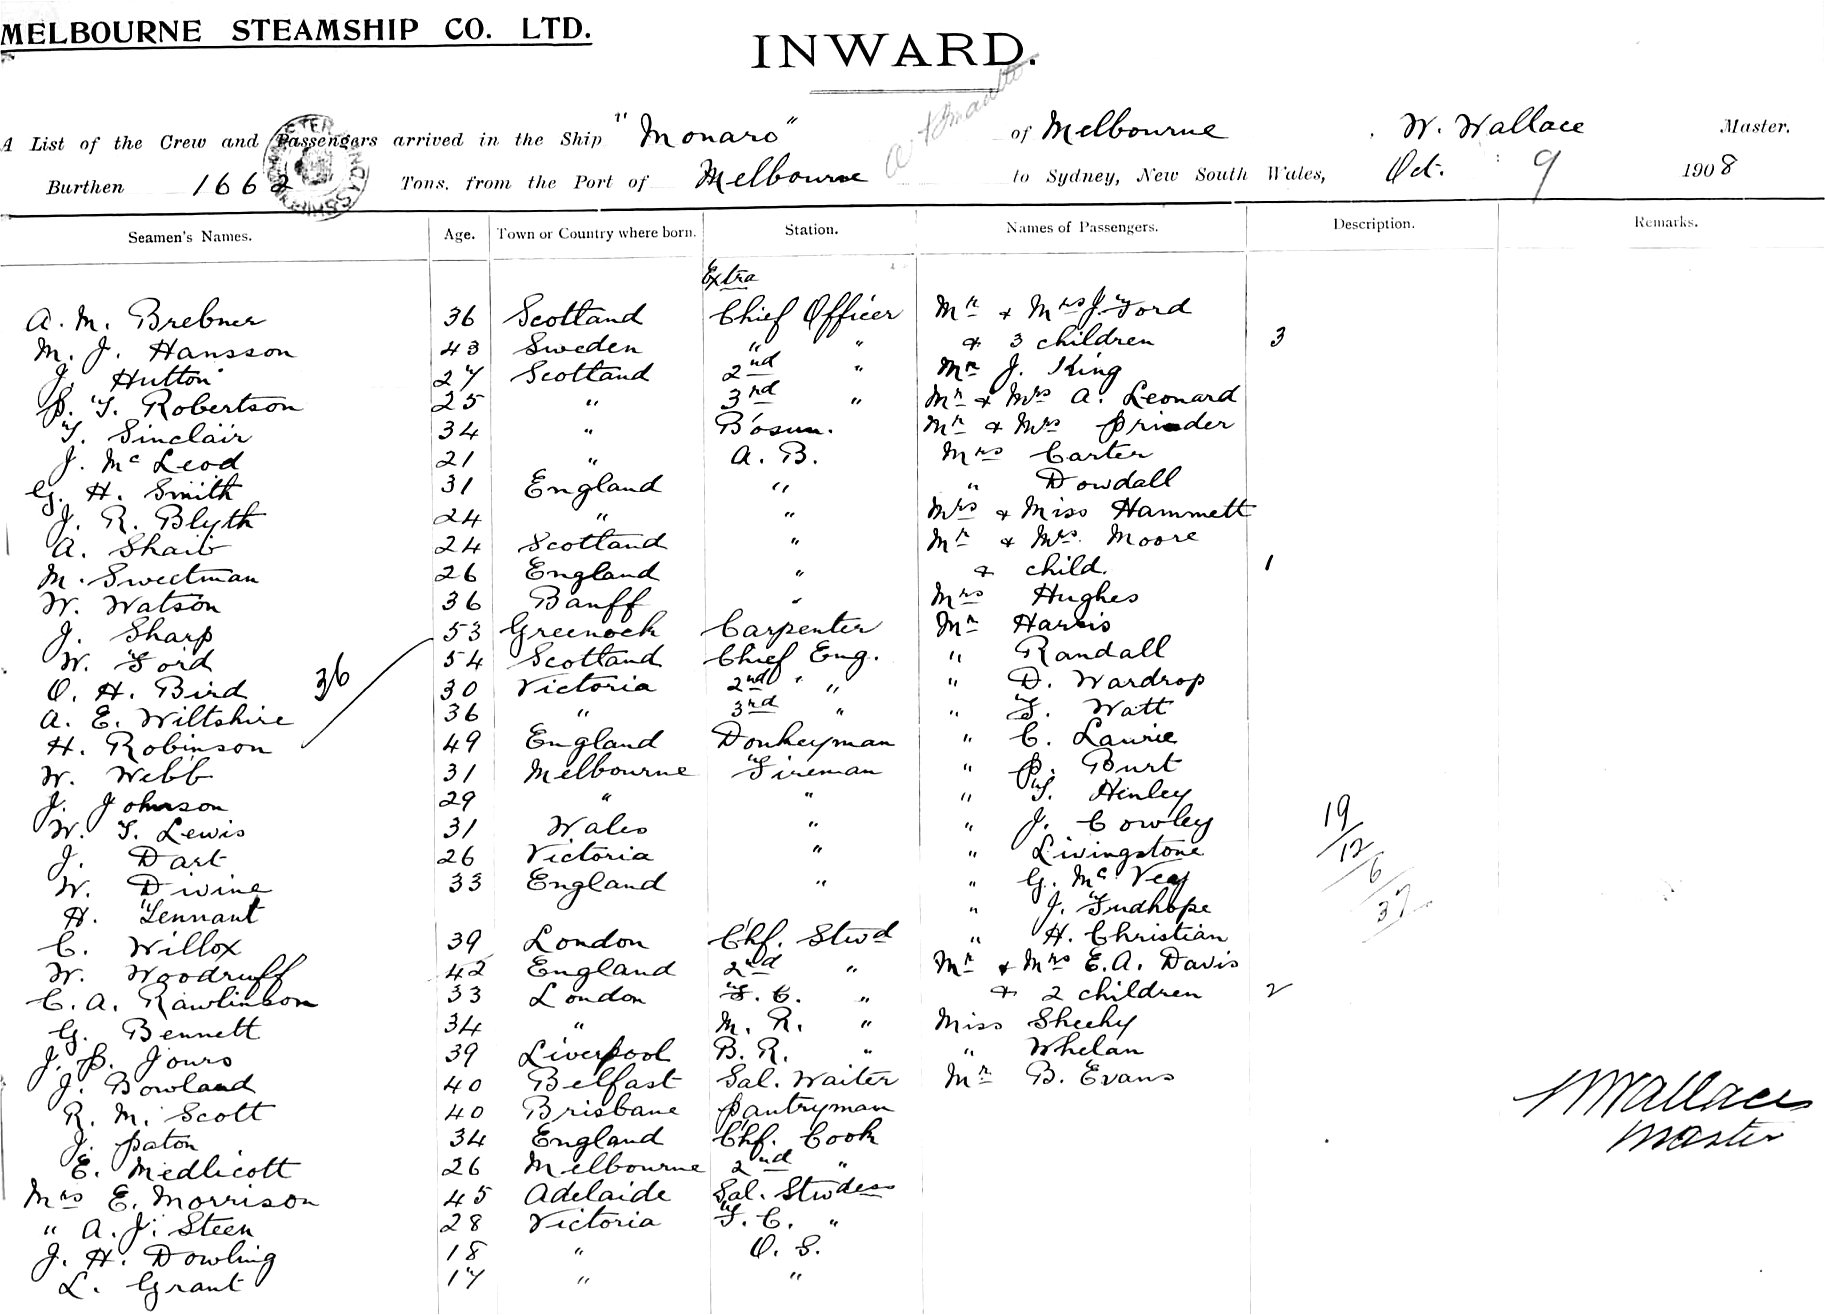 MELBOURNE STEAMSHIP CO. LTD.
INWARD.
A List of the Crew and Passengers arrived in the Ship "Monaro" of Melbourne, W. Wallace Master.
Burthen 1662 Tons, from the Port of Melbourne to Sydney, New South Wales, Oct. 9 1908
Seamen's Names. Age. Town or Country where born. Station. Names of Passengers. Description. Remarks.
Extra
A. M. Brebner 36 Scotland Chief Officer Mr & Mrs J. Ford
M. J. Hansson 43 Sweden " " & 3 children 3
J. Hutton 27 Scotland 2nd " Mr J. King
P. T. Robertson 25 " 3rd " Mr & Mrs A. Leonard
T. Sinclair 34 " Bosun. Mr & Mrs
J. McLeod 21 " A. B. Mrs Carter
G. H. Smith 31 England " " Dowdall
J. R. Blyth 24 " " Mrs & Miss Hammett
A. 24 Scotland " Mr & Mrs. Moore
M. Sweetman 26 England " & child. 1
W. Watson 36 Banff " Mrs Hughes
J. Sharp 53 Greenock Carpenter Mr Harris
W. Ford 54 Scotland Chief Eng. " Randall
O. H. Bird 36 30 Victoria 2nd " " " D. Wardrop
A. E. Wiltshire 36 " 3rd " " Watt
H. Robinson 49 England Donkeyman " C. Laurie
W. Webb 31 Melbourne Fireman " P. Burt
J. Johnson 29 " " " T. Henley
W. T. Lewis 31 Wales " " J. Cowley 19
J. Dart 26 Victoria " " Livingstone 12
W. Divine 33 England " " G. McVeg 6
H. Tennant " J. Tudhope 37
C. Willox 39 London Chf. Stwd " H. Christian
W. Woodruff 42 England 2nd " Mr & Mrs E. A. Davis
C. A. Rawlinson 33 London F. C. " & 2 children 2
G. Bennett 34 " M. R. " Miss Sheehy
J. P. Jours 39 Liverpool B. R. " " Whelan
J. Bowland 40 Belfast Sal. Waiter Mr B. Evans
R. M. Scott 40 Brisbane Pantryman W Wallace
J. Paton 34 England Chf. Cook Master
E. Medlicott 26 Melbourne 2nd "
Mrs E. Morrison 45 Adelaide Sal. Stwdess
" A. J. Steen 28 Victoria F. C. "
J. H. Dowling 18 " O. S.
L. Grant 17 " "